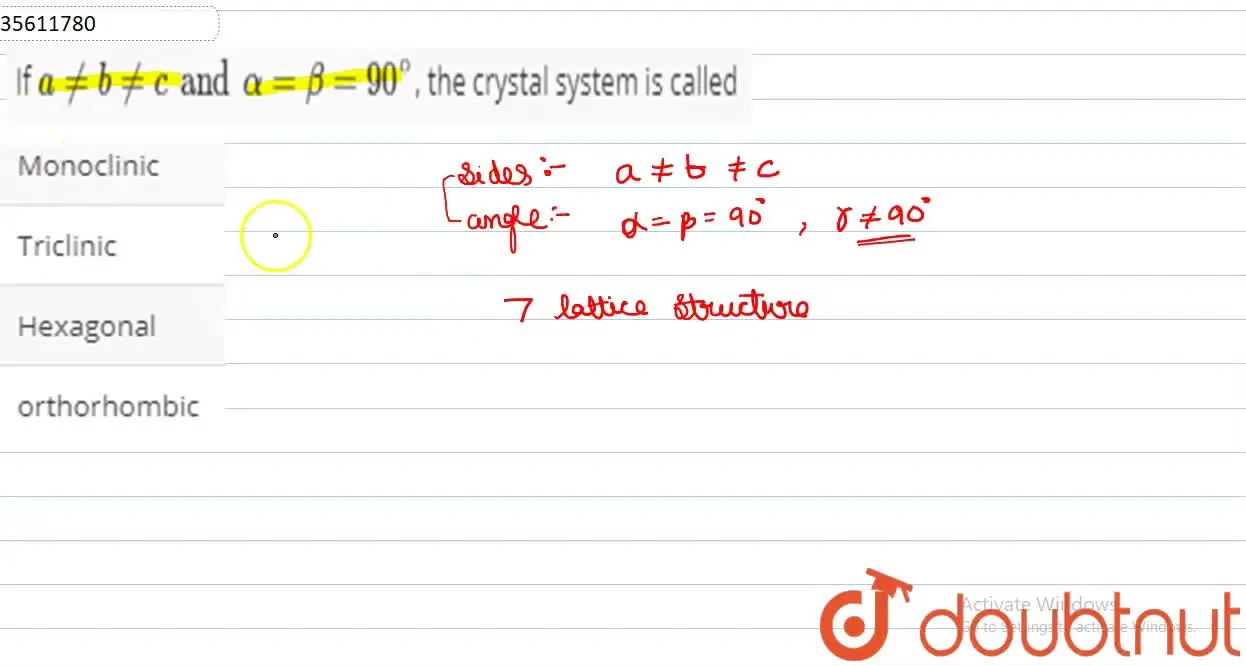 35611780
If a ≠ b ≠ c and α = β = 90°, the crystal system is called
Monoclinic
Triclinic
Hexagonal
orthorhombic
Sides :- a ≠ b ≠ c
angle :- α = β = 90° , γ ≠ 90°
7 lattice structure
Activate Windows
Go to Settings to activate Windows.
doubtnut